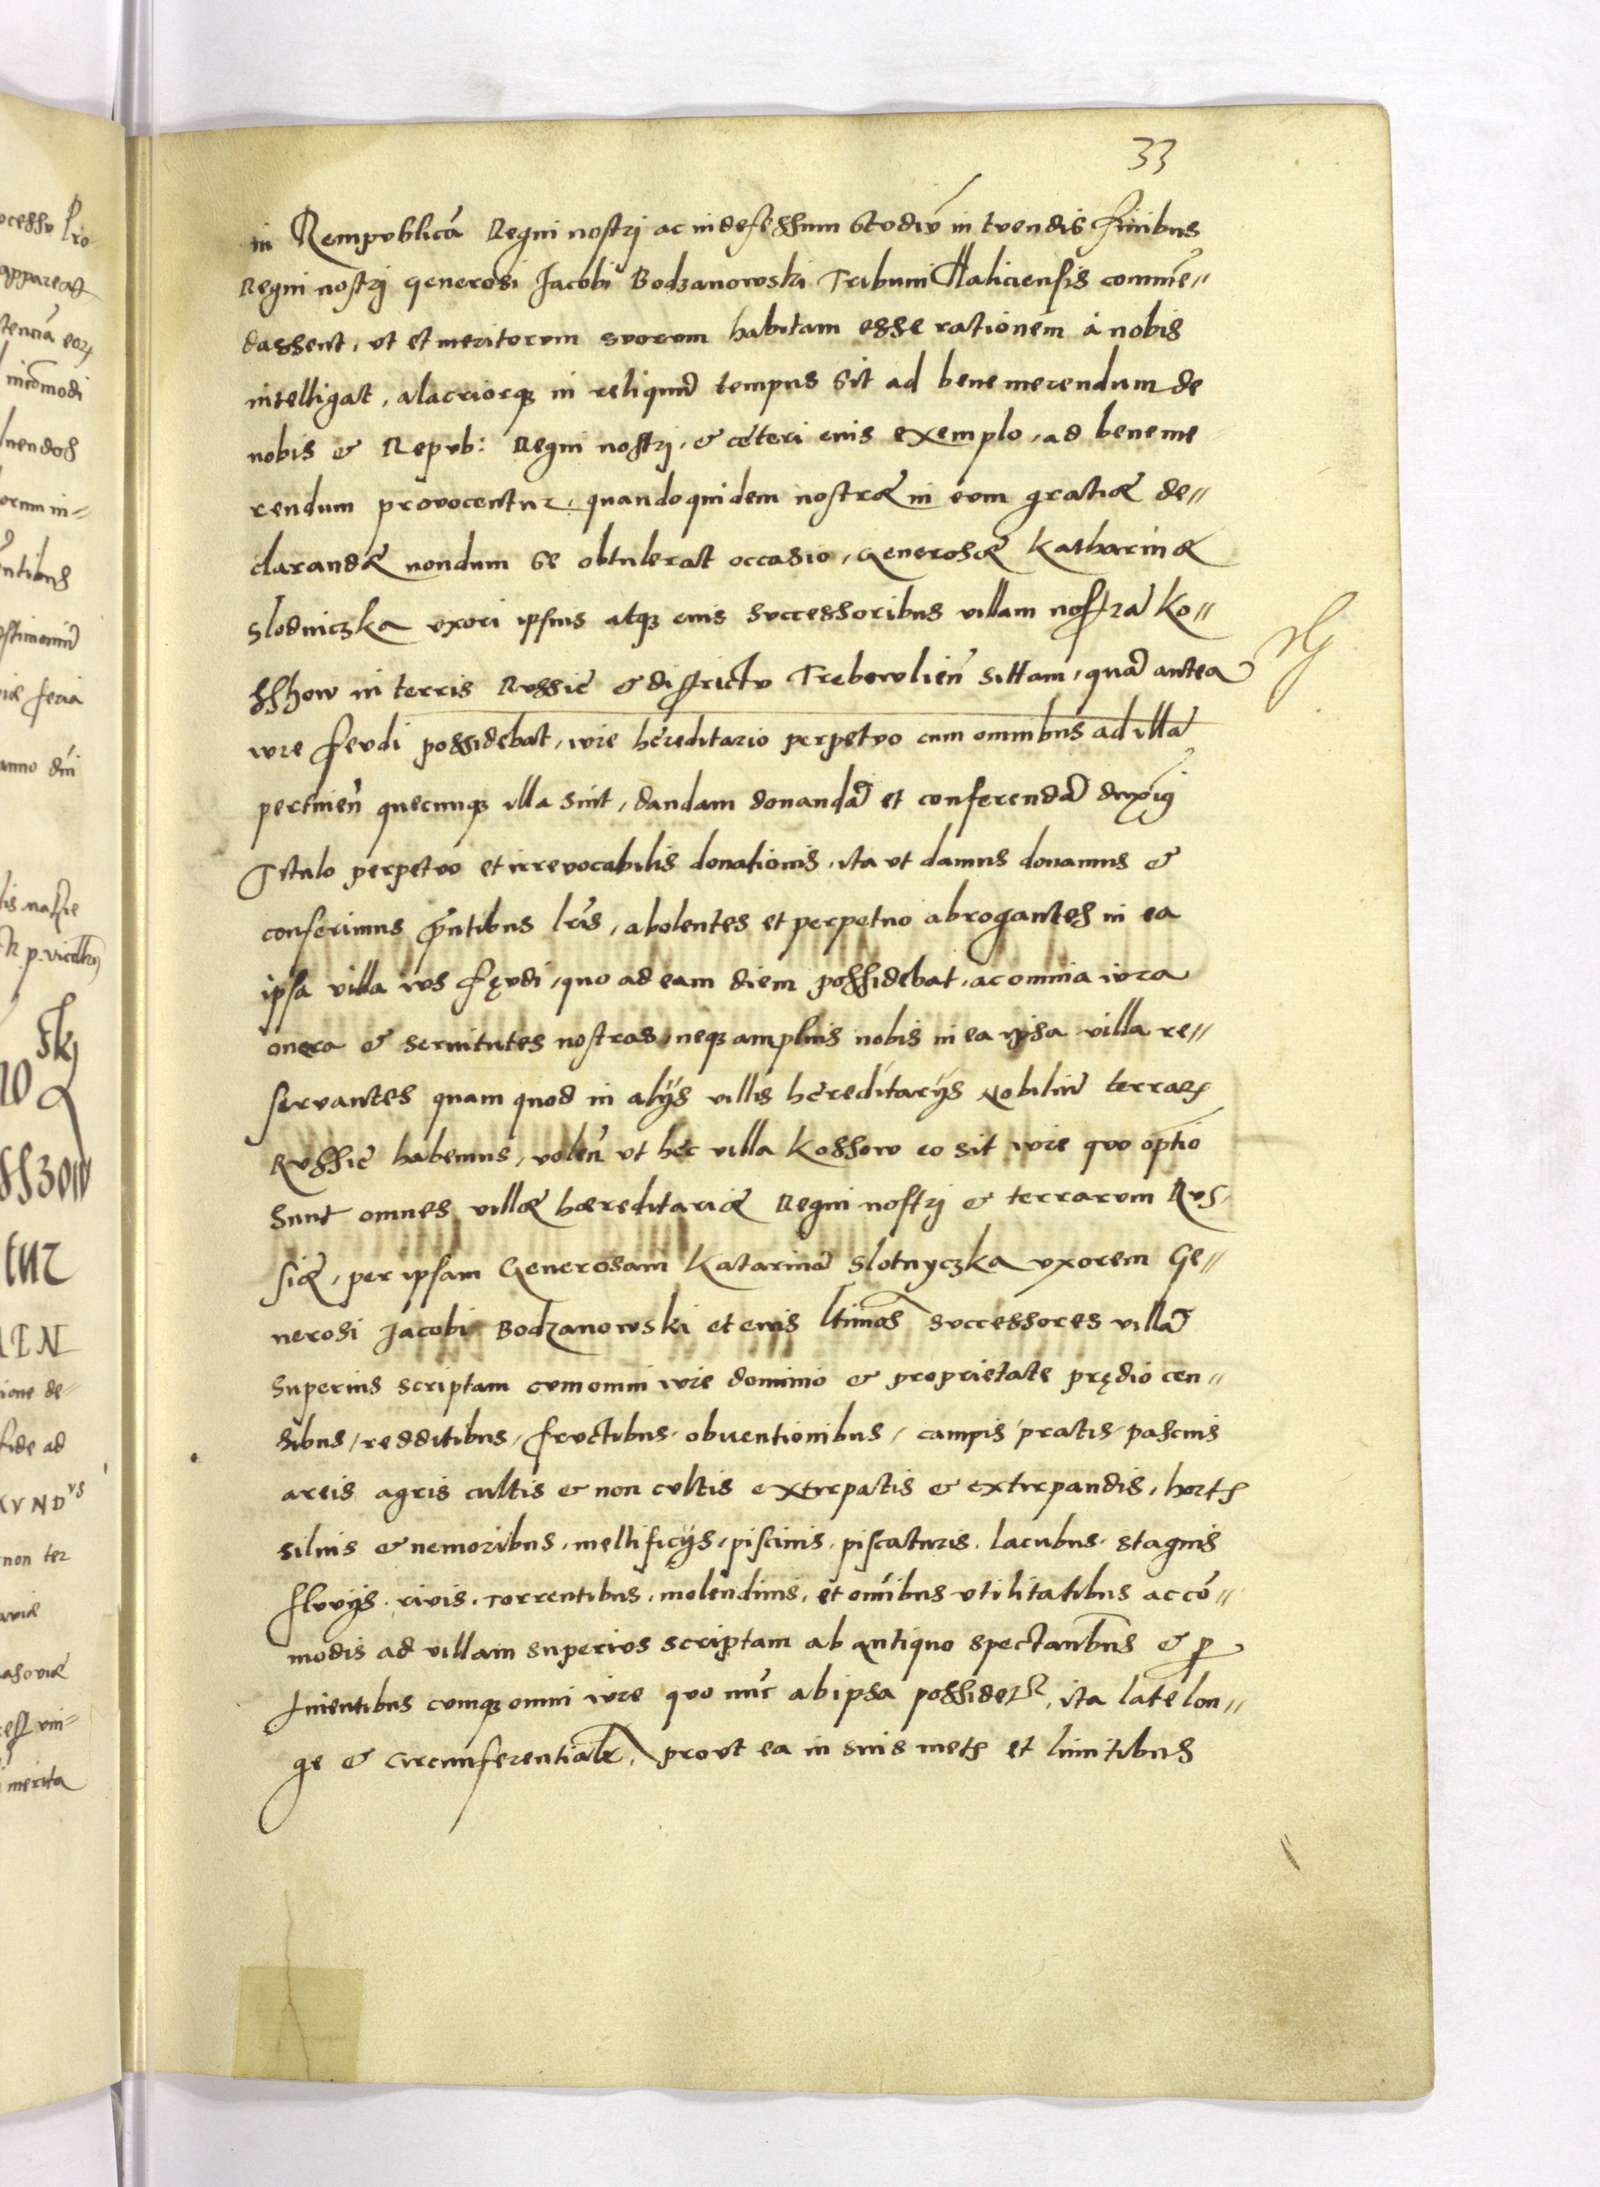 33
in Rempublicā Regni nostrj ac indefessum studiū in tuendis finibus
Regni nostrj generosi Jacobi Bodzanowski Tribuni Haliciensis commē„
dassent, ut et meritorum suorum habitam esse rationem á nobis
intelligat, alacriorq; in reliquū tempus sit ad bene merendum de
nobis & Repub: Regni nostrj, & cęteri eius exemplo, ad beneme
rendum provocentur, quandoquidem nostræ in eum gratiæ de„
clarandæ nondum se obtulerat occasio, Generosæ Katharinæ
Slodniczka uxori ipsius atq; eius successoribus villam nostrā Ko„
sshow in terris Russię & districtu Trebowlień sittam, quā antea
iure feudi possidebat, iure hęreditario perpetuo cum omnibus ad illā
pertineń quecunq; illa sint, dandam donandā et conferendā duxim9
Titulo perpetuo et irrevocabilis donationis, ita ut damus donamus &
conferimus p̄ntibus lr̄is, abolentes et perpetuo abrogantes in ea
ipsa villa ius fęudi, quo ad eam diem possidebat, ac omnia iura
onera & servitutes nostras, neq; amplius nobis in ea ipsa villa re„
servantes quam quod in alijs villis hęreditarijs Nobiliū terrarꝝ
Russię habemus, voleń ut hęc villa Kossow eo sit iure quo optīo
sunt omnes villæ hæreditariæ Regni nostrj & terrarum Rus,
siæ, per ipsam Generosam Katarinā Slotnyczka uxorem Ge„
nerosi Jacobi Bodzanowski et eius ltīmos successores villā
superius scriptam cum omni iure dominio & proprietate prędio cen„
sibus, redditibus, fructibus, obventionibus, campis, pratis, pascuis
areis agris cultis & non cultis extirpatis & extirpandis, hortꝭ
siluis & nemoribus, mellificijs, piscinis, piscaturis, lacubus, stagnis
fluvijs, rivis, torrentibus, molendinis, et om̄ibus utilitatibus ac cō„
modis ad villam superius scriptam ab antiquo spectantibus & ꝑ
tinentibus cumq; omni iure quo nūc ab ipsa possidetʳ, ita late lon„
ge & circumferentialr̄, prout ea in suis metꝭ et limitibus